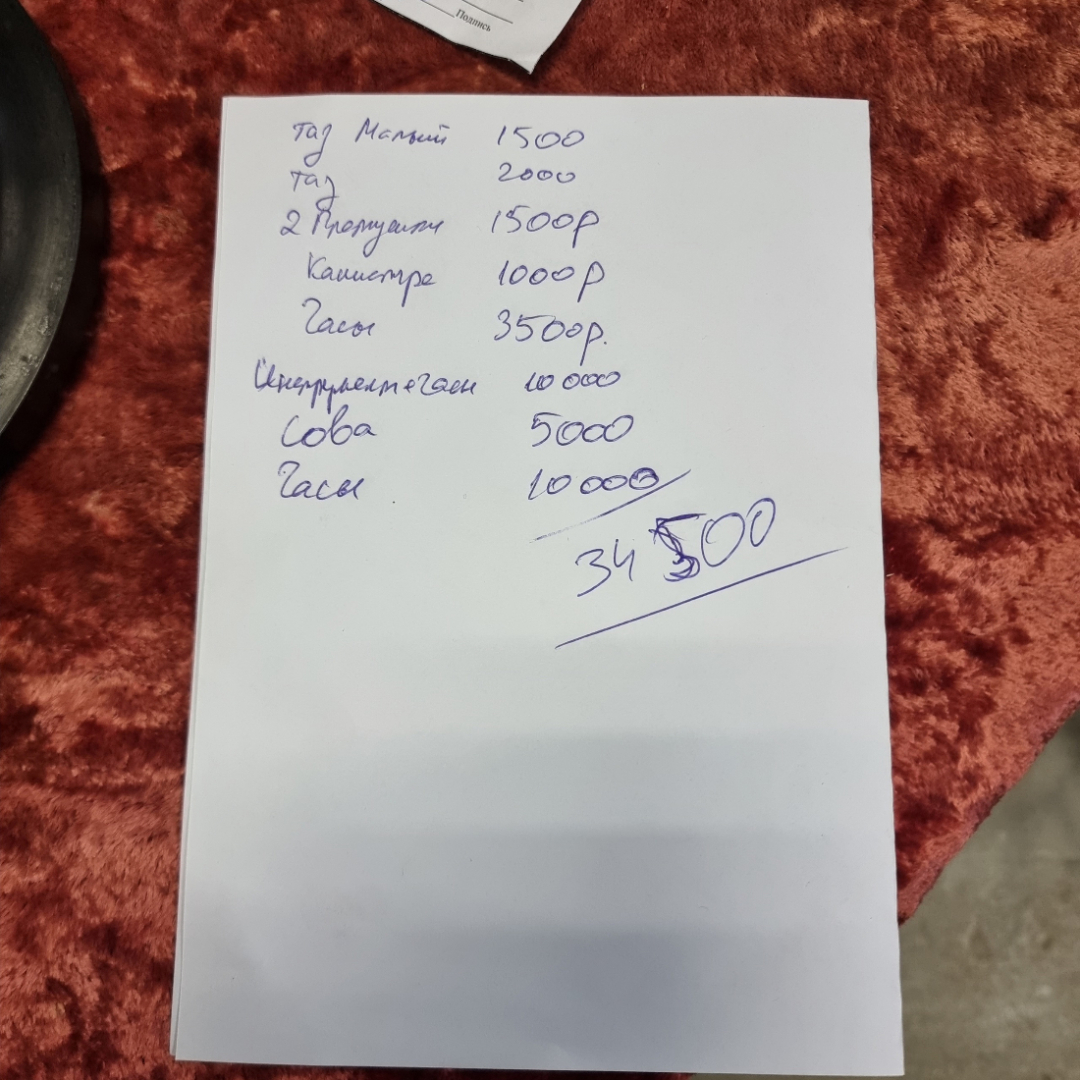 Подпись
таз Малый 1500
таз 2000
2 1500р
Канистра 1000р
Часы 3500р.
Инструмент+Часы 10 000
Сова 5000
Часы 10 000
34 500